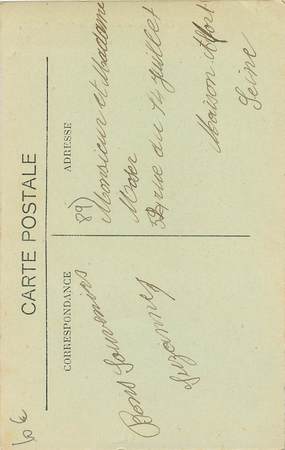 CARTE POSTALE
CORRESPONDANCE
Bons Souvenirs
Suzanne
ADRESSE
89)
Monsieur et Madame
rue du 14 juillet
Maison Alfort
Seine